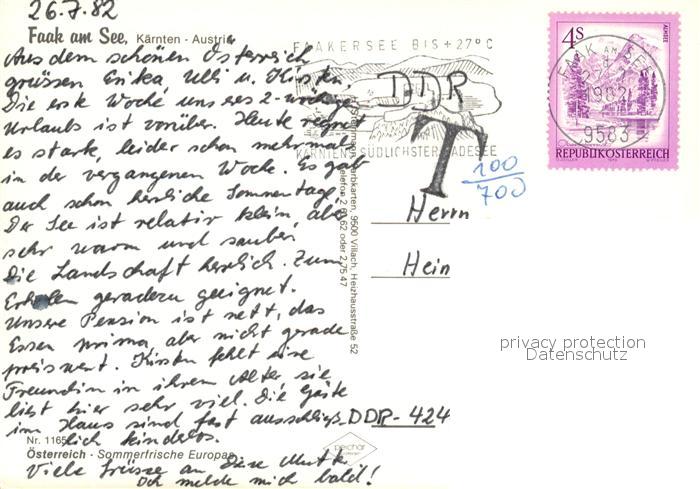 26.7.82
Faak am See, Kärnten - Austria
Aus dem schönen Österreich
grüssen Erika Ulli u. Kirsten.
Die erste Woche unseres 2-wöchige
Urlaubs ist vorüber. Heute regnet
es stark, leider schon mehrmals
in der vergangenen Woche. Es gab
auch schon herrliche Sommertage,
Der See ist relativ klein, aber
sehr warm und sauber,
die Landschaft herrlich. Zum
Erholen geradezu geeignet.
Unsere Pension ist nett, das
Essen prima, aber nicht gerade
preiswert. Kirsten fehlt eine
Freundin in ihrem Alter sie
liest hier sehr viel. Die Gäste
im Haus sind fast ausschließ-
lich kinderlos.
Viele Grüsse an Deine Mutti
Ich melde mich bald!
Nr. 1165
Österreich - Sommerfrische Europas
FAAKERSEE BIS +27°C
KÄRNTENS SÜDLICHSTER BADESEE
DDR
T
100
700
4S
ALMSEE
REPUBLIK ÖSTERREICH
FAAK AM SEE
1982
9583
Farbkarten, 9500 Villach, Heizhausstraße 52
Telefon 2 81 62 oder 2 75 47
Herrn
Hein
privacy protection
Datenschutz
DDR-424